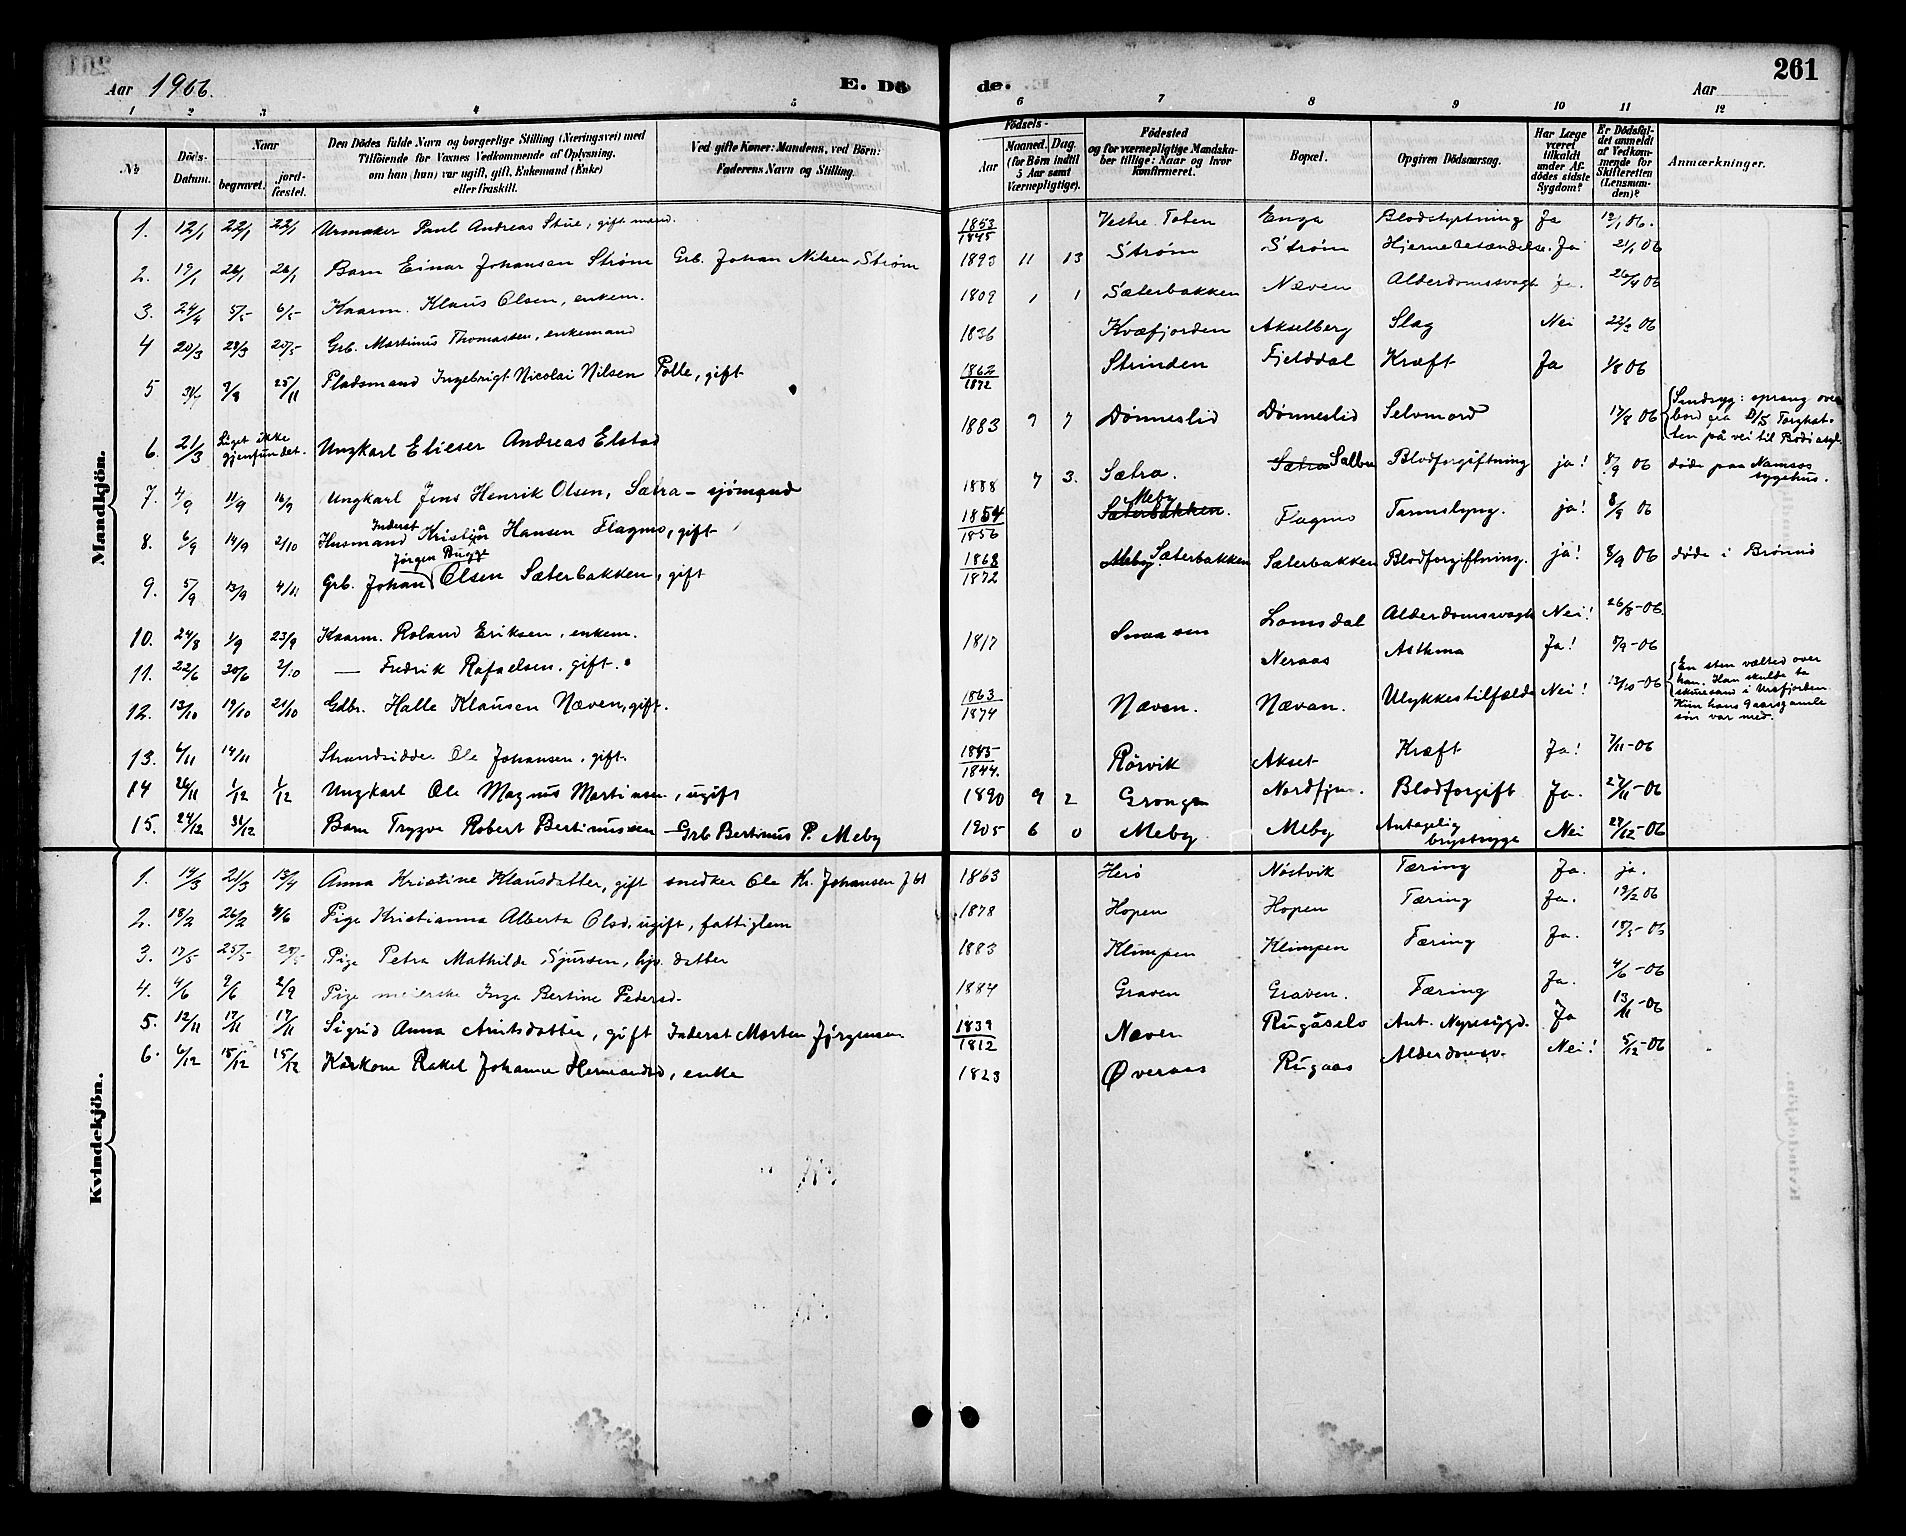 Aar 1906.
E. Dö
de.
Aar
261
1 2 3 4 5 6 7 8 9 10 11 12
No
Döds-Datum.
Naar
begravet.
jord-fæstet.
Den Dödes fulde Navn og borgerlige Stilling (Næringsvei) med
Tilföiende for Voxnes Vedkommende af Oplysning,
om han (hun) var ugift, gift, Enkemand (Enke)
eller fraskilt.
Ved gifte Koner: Mandens, ved Börn:
Faderens Navn og Stilling.
Födsels-
Aar
Maaned. Dag.
(for Börn indtil
5 Aar samt
Værnepligtige).
Födested
og for værnepligtige Mandska-
ber tillige: Naar og hvor
konfirmeret.
Bopæl.
Opgiven Dödsaarsag.
Har Læge
været
tilkaldt
under Af-
dödes sidste
Sygdom?
Er Dödsfal-
det anmeldt
af Vedkom-
mende for
Skifteretten
(Lensman-
den)?
Anmærkninger.
Mandkjön.
1. 12/1 22/1 22/1 Urmaker Paul Andreas Stue, gift mand. 1853/1845 Vestre Toten Enga Blodstyrtning Ja 12/1 06.
2. 19/1 26/1 26/1 Barn Einar Johansen Strøm Grb. Johan Nilsen Strøm 1893 11 13 Strøm Strøm Hjernebetændelse. Ja 21/1 06
3. 24/4 5/5 6/5 Kaarm. Klaus Olsen, enkem. 1809 1 1 Sæterbakken Næven Alderdomssvagt Ja. 26/4 06
4 20/3 28/3 20/5 Grb. Martinus Thomassen, enkemand 1836 Kvæfjorden Akselberg Slag Nei 22/3 06
5 31/7 9/8 25/11 Pladsmand Ingebrigt Nicolai Nilsen Polle, gift 1862/1872 Strinden Fjelddal Kræft Ja 1/8 06
6. 21/3 Liget ikke gjenfundet. Ungkarl Elieser Andreas Elstad 1883 9 7 Dønneslid Dønneslid Selvmord 17/8 06 Sindsyg: sprang over
bord fra D/S Torghat-
ten på vei til Bodø asyl.
7. 4/9 11/9 16/9 Ungkarl Jens Henrik Olsen, Sætra - sjömand 1888 7 3. Sætra. Sætra Salbu Blodforgiftning ja! 8/9 06 døde paa Namsos
sygehus.
8. 6/9 14/9 2/10 Husmand Inderst Kristian Hansen Flagmo, gift 1854/1856 Sæterbakken. Meby Flagmo Tarmslyng. ja! 8/9 06
9. 5/9 13/9 4/11 Grb. Johan Jørgen Bugge Olsen Sæterbakken, gift 1868/1872 Meby. Sæterbakken Sæterbakken Blodforgiftning. ja! 8/9 06 døde i Brønnø
10. 24/8 1/9 23/9 Kaarm. Roland Eriksen, enkem. 1817 Snaasen Lomsdal Alderdomssvagt Nei! 26/8-06.
11. 22/6 30/6 2/10 — Fredrik Rafaelsen, gift. Neraas Asthma Ja! 5/9-06
12. 13/10 19/10 21/10 Gdbr. Halle Klausen Næven, gift. 1863/1874 Næven. Nævan. Ulykkestilfælde Nei! 13/10-06 En sten vælted over
han. Han skulde ta
skuresand i Ursfjorden.
Kun hans 9 aars gamle
søn var med.
13. 4/11 14/11 Strandsidder Ole Johansen, gift. 1845/1844. Rörvik Akset Kræft Ja! 7/11-06
14 26/11 1/12 1/12 Ungkarl Ole Magnus Martinsen, ugift 1890 9 2 Grongn Blodforgift Ja. 27/11-06
15. 24/12 31/12 Barn Trygve Robert Bertinussen - Grb Bertinus P. Meby 1905 6 0 Meby. Meby Antagelig
brystsyge Nei 27/12-06
Kvindekjön.
1. 14/3 21/3 13/4 Anna Kristine Klausdatter, gift snedker Ole Kr. Johansen 1863 Herø Nostvik Tæring Ja. ja.
2. 18/2 26/2 4/6 Pige Kristianna Alberta Olsd. ugift, fattiglem 1878 Hopen Hopen Tæring Ja. 19/2 06
3. 17/5 25/5 29/5 Pige Petra Mathilde Sjursen, hjv. datter 1883 Klimpen Klimpen Tæring Ja. 18/5-06
4. 4/6 9/6 2/9 Pige meierske Inga Bertine Pedersd. 1884 Graven Graven. Tæring Ja. 4/6-06
5. 12/11 17/11 17/11 Sigrid Anna Arntsdatter, gift Inderst Morten Jørgensen 1839/1812 Næven Rugåsels Ant. Nyresygd. Ja 13/11-06
6. 4/12 15/12 15/12 Kårkone Rakel Johanna Hermandsd, enke 1823 Øveraas Rugaas Alderdomsv. Nei! 5/12-06